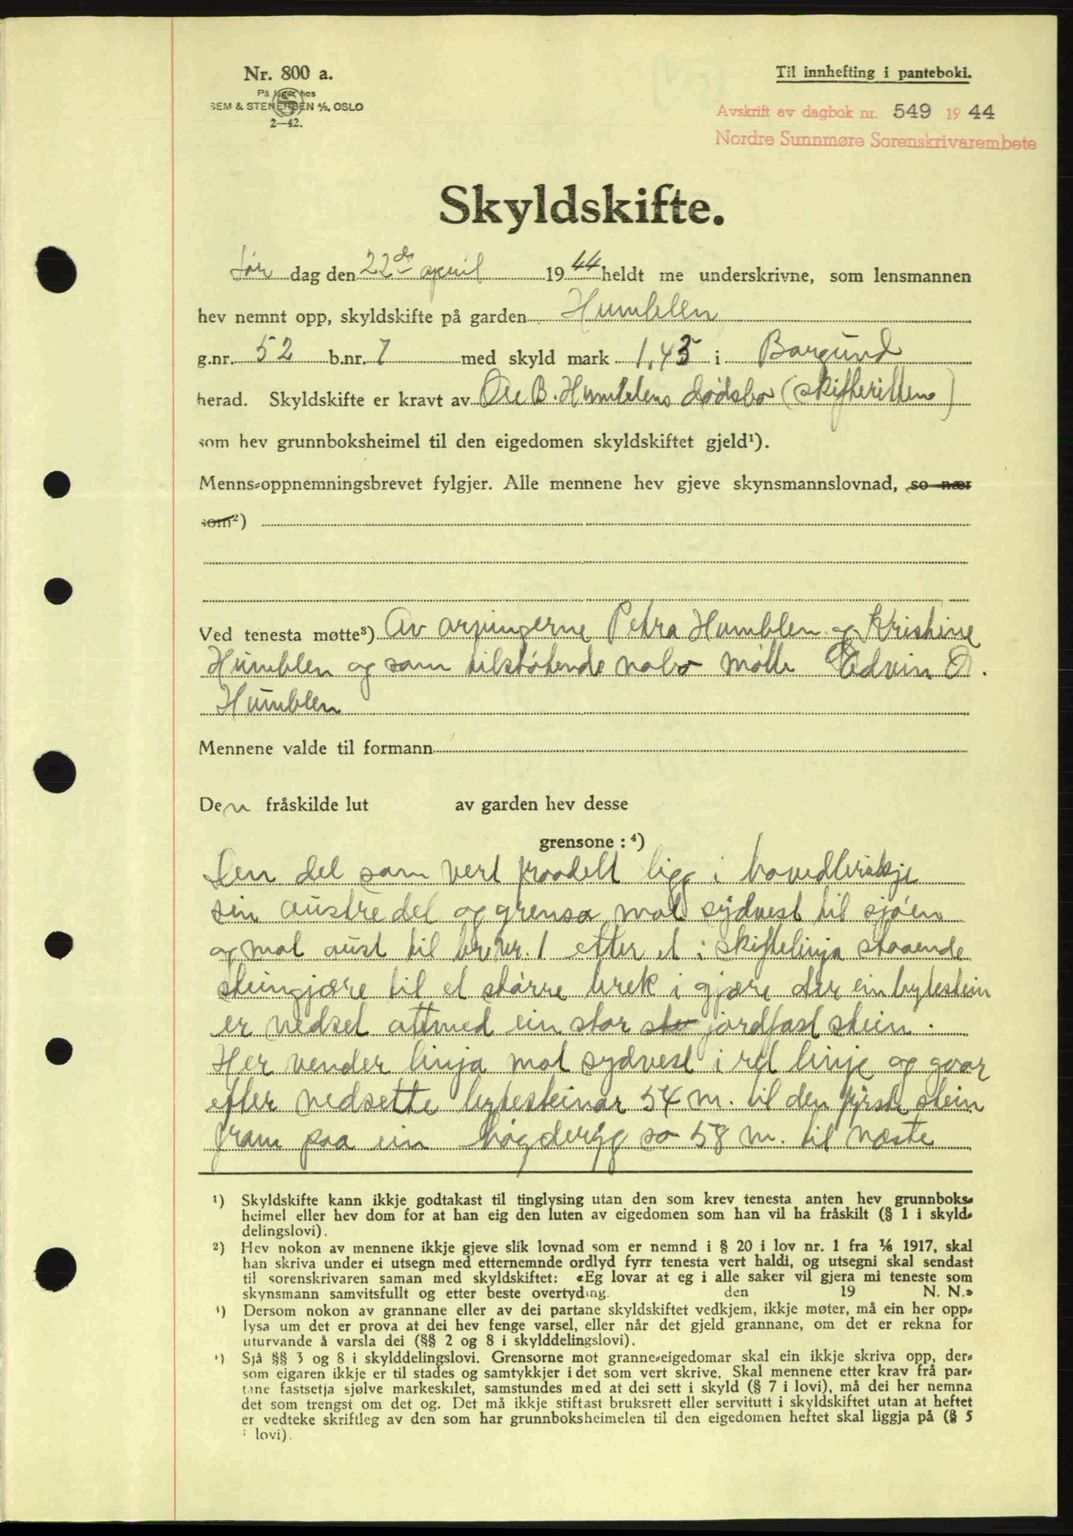 Nr. 800 a.
På lager hos
SEM & STENERSEN A/S, OSLO
2—42.
Til innhefting i panteboki.
Avskrift av dagbok nr. 549 19 44
Nordre Sunnmøre Sorenskrivarembete
Skyldskifte.
Lør dag den 22de april 19 44 heldt me underskrivne, som lensmannen
hev nemnt opp, skyldskifte på garden Humblen
g.nr. 52 b.nr. 7 med skyld mark 1,43 i Borgund
herad. Skyldskifte er kravt av Ole B. Humblens dødsbo (skifteretten)
som hev grunnboksheimel til den eigedomen skyldskiftet gjeld¹).
Menns-oppnemningsbrevet fylgjer. Alle mennene hev gjeve skynsmannslovnad, so nær
som²)
Ved tenesta møtte³) Av arvingerne Petra Humblen og Kristine
Humblen og som tilstøtende nabo møtte Edvin O.
Humblen
Mennene valde til formann
Den fråskilde lut av garden hev desse
grensone : ⁴)
Den del som vert fraadelt ligg i hovedbrukje
sin austre del og grensa mot sydvest til sjøen
og mot aust til br.nr. 1 etter et i skiftelinja staaende
steingjære til et større brek i gjære der ein bytestein
er nedset attmed ein stor sto jordfast stein.
Her vender linja mot sydvest i ret linje og gaar
efter nedsette bytesteinar 54 m. til den fyrste stein
fram paa ein høgderyg so 58 m. til næste
¹) Skyldskifte kann ikkje godtakast til tinglysing utan den som krev tenesta anten hev grunnboks-
heimel eller hev dom for at han eig den luten av eigedomen som han vil ha fråskilt (§ 1 i skyld-
delingslovi).
²) Hev nokon av mennene ikkje gjeve slik lovnad som er nemnd i § 20 i lov nr. 1 fra 1/6 1917, skal
han skriva under ei utsegn med etternemnde ordlyd fyrr tenesta vert haldi, og utsegni skal sendast
til sorenskrivaren saman med skyldskiftet: «Eg lovar at eg i alle saker vil gjera mi teneste som
skynsmann samvitsfullt og etter beste overtyding. den 19 N. N.»
³) Dersom nokon av grannane eller av dei partane skyldskiftet vedkjem, ikkje møter, må ein her opp-
lysa um det er prova at dei hev fenge varsel, eller når det gjeld grannane, om det er rekna for
uturvande å varsla dei (§§ 2 og 8 i skylddelingslovi).
⁴) Sjå §§ 3 og 8 i skylddelingslovi. Grensorne mot granne-eigedomar skal ein ikkje skriva opp, der-
som eigaren ikkje er til stades og samtykkjer i det som vert skrive. Skal mennene etter krav frå par-
tane fastsetja sjølve markeskilet, samstundes med at dei sett i skyld (§ 7 i lovi), må dei her nemna
det som trengst om det og. Det må ikkje stiftast bruksrett eller servitutt i skyldskiftet utan at heftet
er vedteke skriftleg av den som har grunnboksheimelen til den eigedomen heftet skal liggja på (§ 5
i lovi).